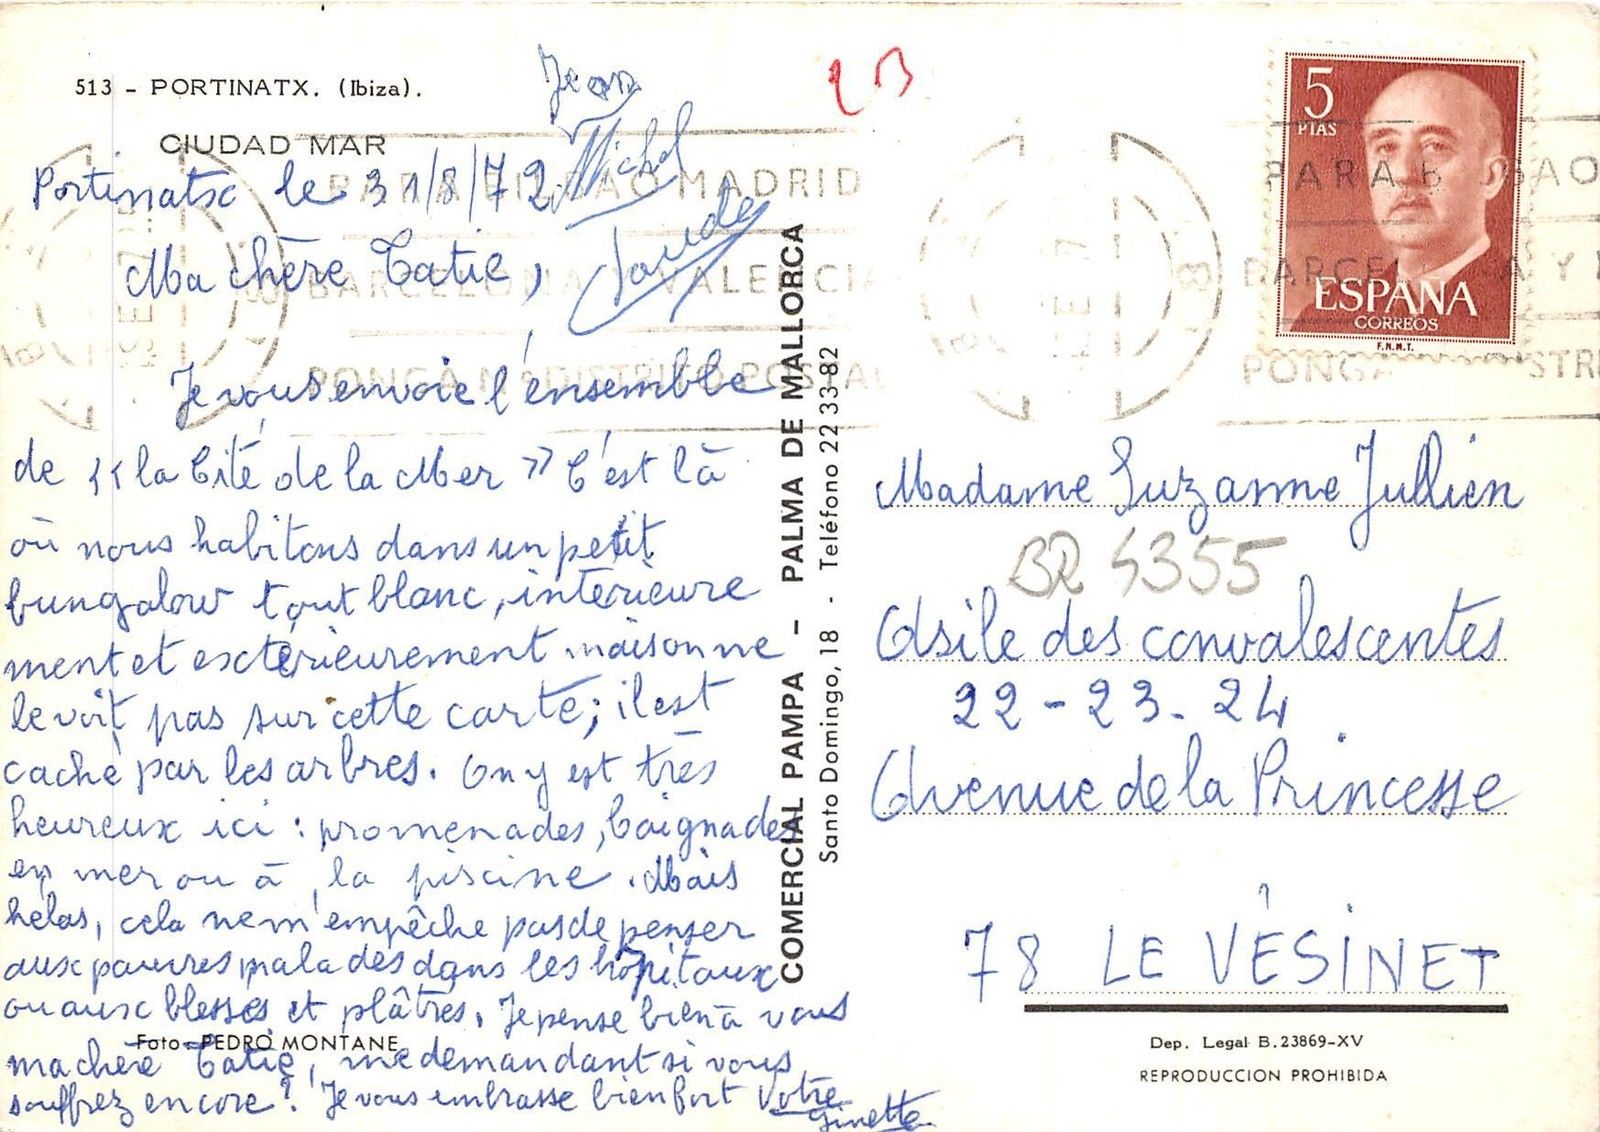 513 - PORTINATX. (Ibiza).
CIUDAD MAR
Jean
Michel
23
Portinatx le 31/8/72
Ma chère Tatie,
Je vous envoie l'ensemble
de "la Cité de la Mer" C'est là
où nous habitons dans un petit
bungalow tout blanc, intérieure
ment et extérieurement mais on ne
le voit pas sur cette carte; il est
caché par les arbres. On y est très
heureux ici : promenades, baignades
en mer ou à la piscine. Mais
hélas, cela ne m'empêche pas de penser
aux pauvres malades dans les hôpitaux
ou aux blessés et plâtrés. Je pense bien à vous
ma chère Tatie, me demandant si vous
souffrez encore? Je vous embrasse bien fort Votre
Ginette
Foto PEDRO MONTANE
COMERCIAL PAMPA - PALMA DE MALLORCA
Santo Domingo, 18 - Teléfono 22 33 82
PARA BILBAO MADRID
BARCELONA Y VALENCIA
PONGA Nº DISTRITO POSTAL
5
PTAS
ESPAÑA
CORREOS
F.N.M.T.
PARA BILBAO
BARCELONA Y
PONGA DISTRI
Madame Suzanne Jullien
BR 4355
Asile des convalescentes
22-23-24
Avenue de la Princesse
78 LE VÉSINET
Dep. Legal B.23869-XV
REPRODUCCION PROHIBIDA